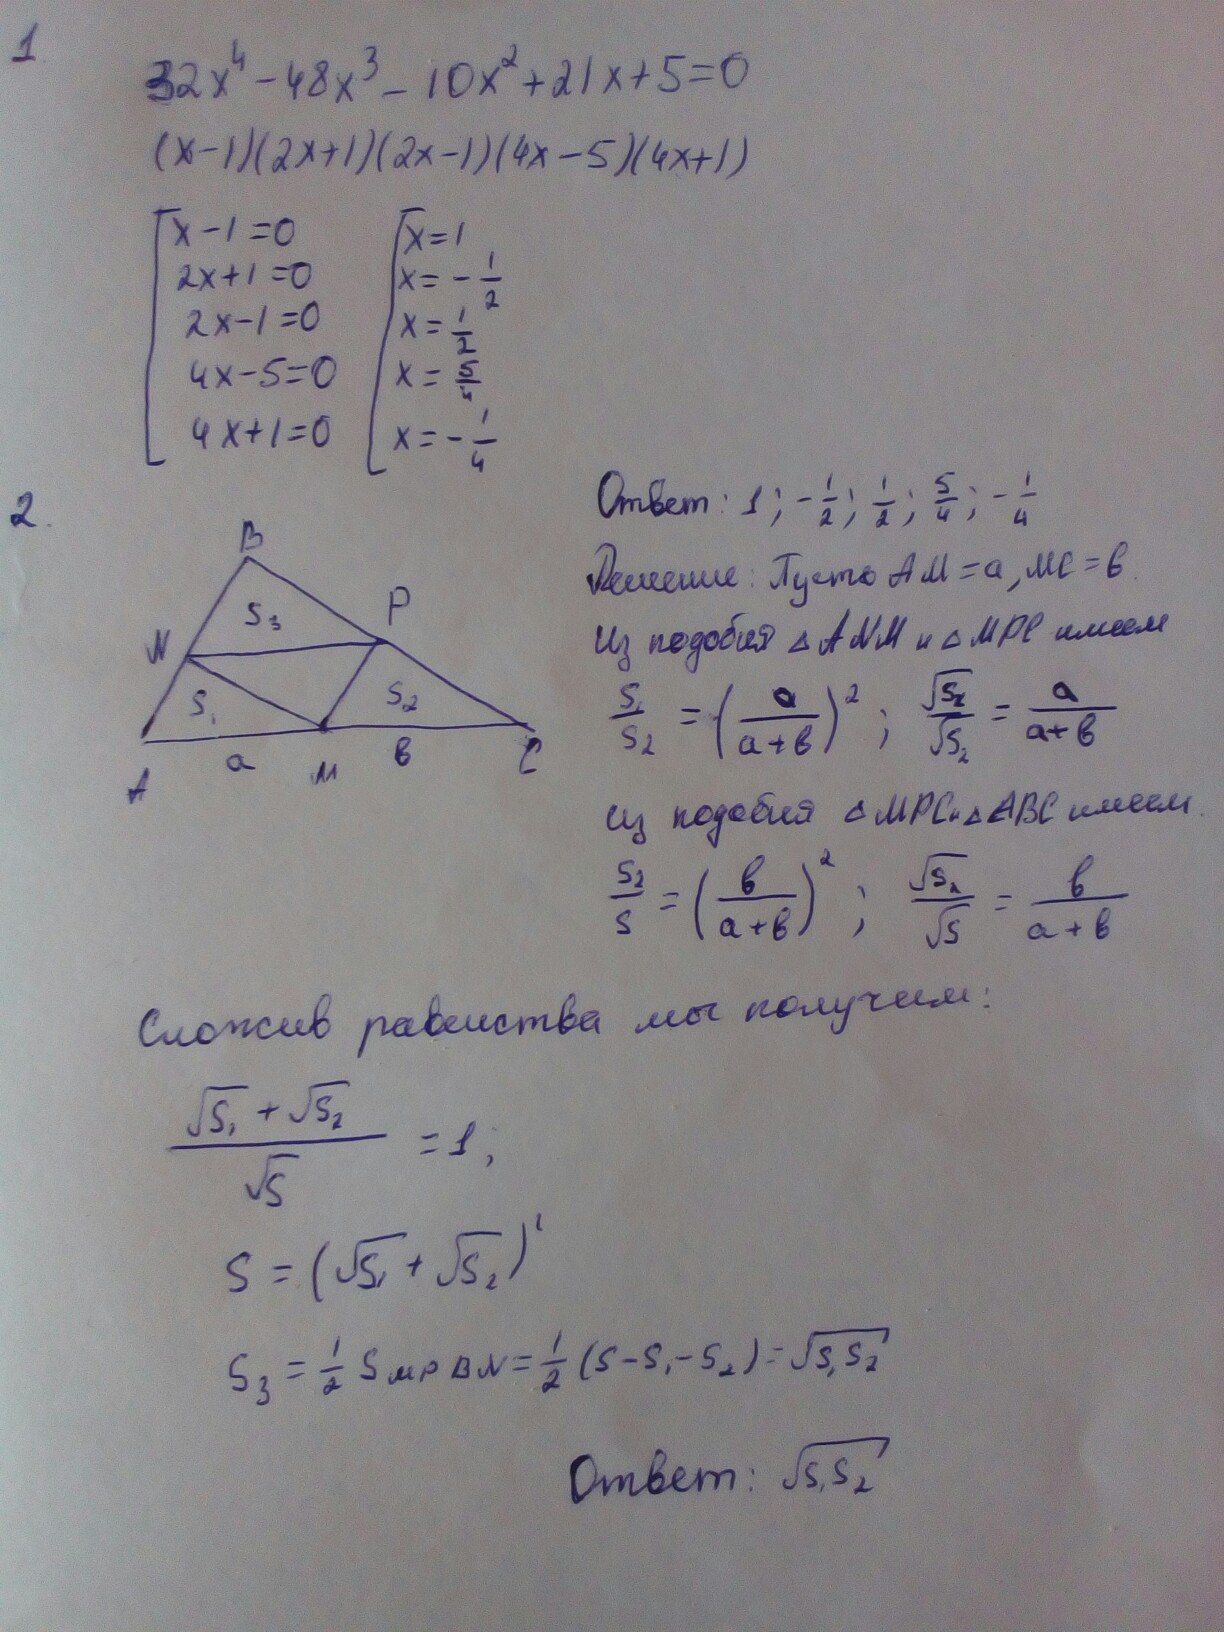 1.
32x⁴ - 48x³ - 10x² + 21x + 5 = 0
(x-1)(2x+1)(2x-1)(4x-5)(4x+1)
x-1=0 x=1
2x+1=0 x=-1/2
2x-1=0 x=1/2
4x-5=0 x=5/4
4x+1=0 x=-1/4
Ответ: 1; -1/2; 1/2; 5/4; -1/4
2.
B
N S₃ P
S₁ S₂
A a M в C
Решение: Пусть AM=a, MC=в.
Из подобия △ANM и △MPC имеем
S₁/S₂ = (a/(a+в))²; √S₂/√S₂ = a/(a+в)
Из подобия △MPC и △ABC имеем.
S₂/S = (в/(a+в))²; √S₂/√S = в/(a+в)
Сложив равенства мы получим:
(√S₁ + √S₂)/√S = 1;
S = (√S₁ + √S₂)²
S₃ = 1/2 S MPBN = 1/2 (S-S₁-S₂) = √S₁S₂
Ответ: √S₁S₂